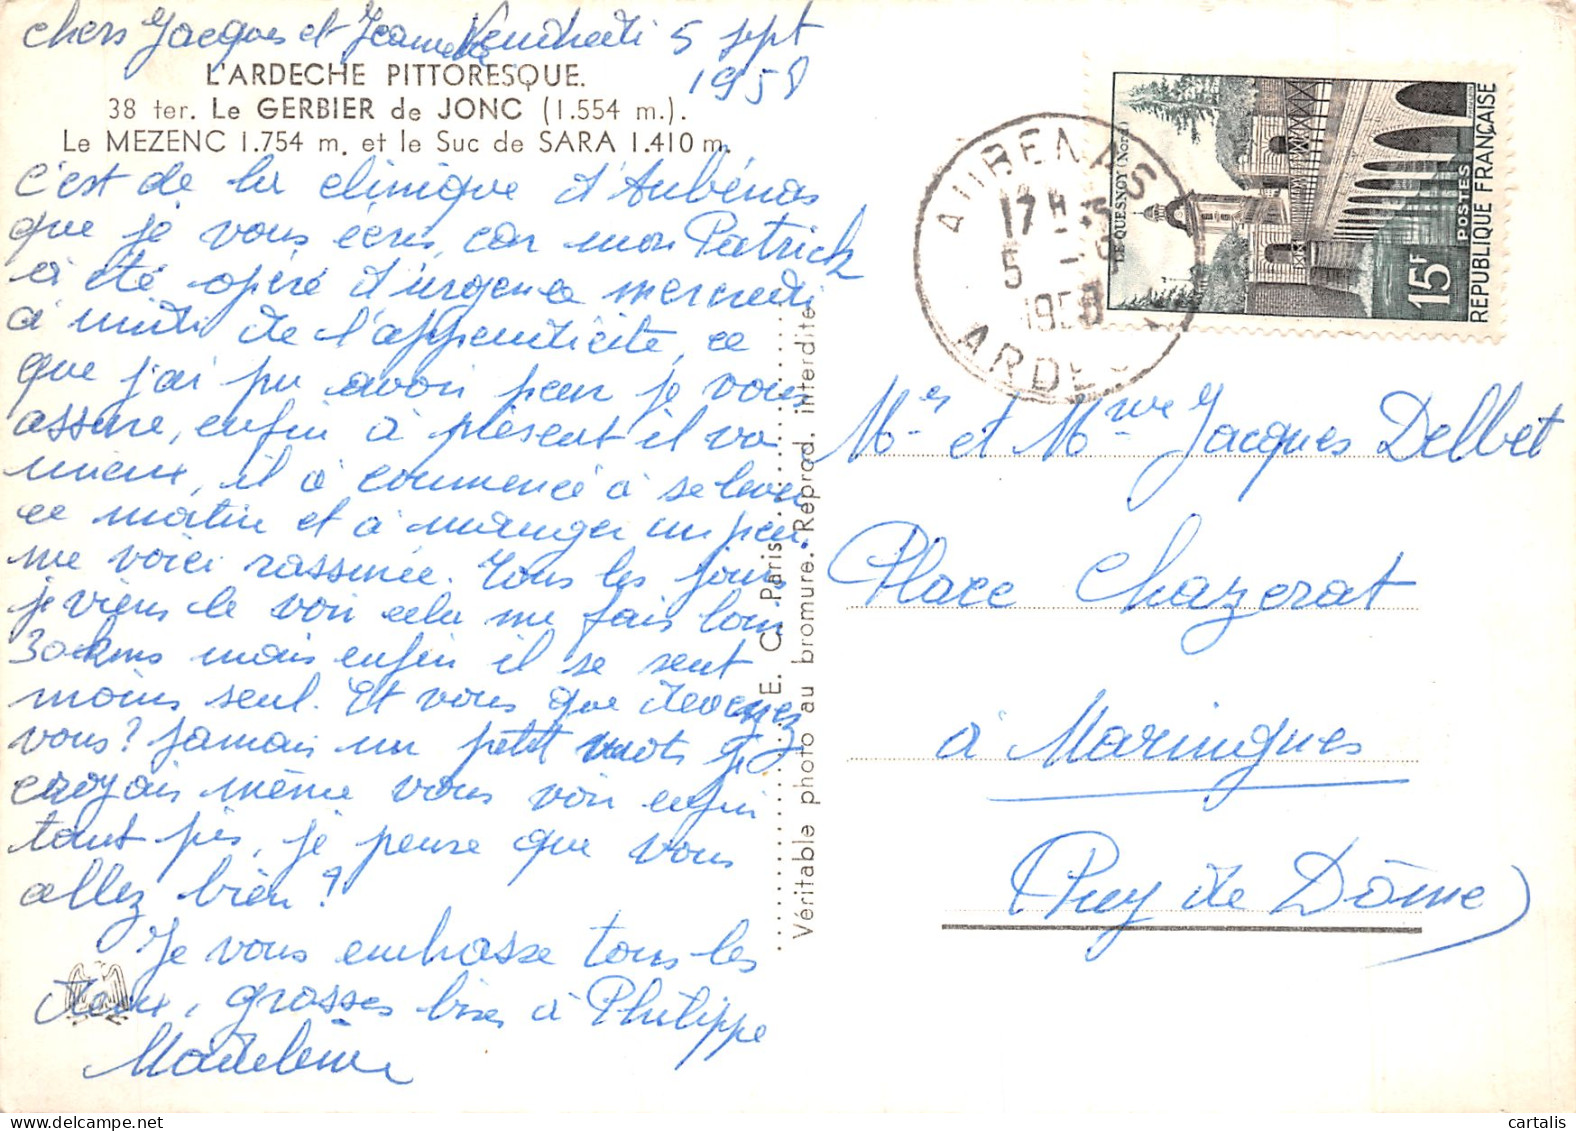 chers Jacques et Jeannette Vendredi 5 sept
1958
L'ARDECHE PITTORESQUE.
38 ter. Le GERBIER de JONC (1.554 m.).
Le MEZENC 1.754 m. et le Suc de SARA 1.410 m.
c'est de la clinique d'Aubénas
que je vous écris, car mon Patrick
a été opéré d'urgence mercredi
à midi de l'appendicite, ce
que j'ai pu avoir peur je vous
assure, enfin à présent il va
mieux, il a commencé à se lever
ce matin et à manger un peu.
me voici rassurée. Tous les jours
je viens le voir cela me fais loin
30 kms mais enfin il se sent
moins seul. Et vous que devenez
vous? Jamais un petit mot je
croyais même vous voir enfin
tant pis, je pense que vous
allez bien?
Je vous embrasse tous les
deux, grosses bises à Philippe
Madeleine
E. C. Paris
Véritable photo au bromure. Reprod. interdite
AUBENAS
17H
5 - 9
1958
ARDE
LE QUESNOY (Nord)
15F
POSTES
REPUBLIQUE FRANÇAISE
Mr et Mme Jacques Delbet
Place Chazerat
à Maringues
(Puy de Dôme)
cartalis